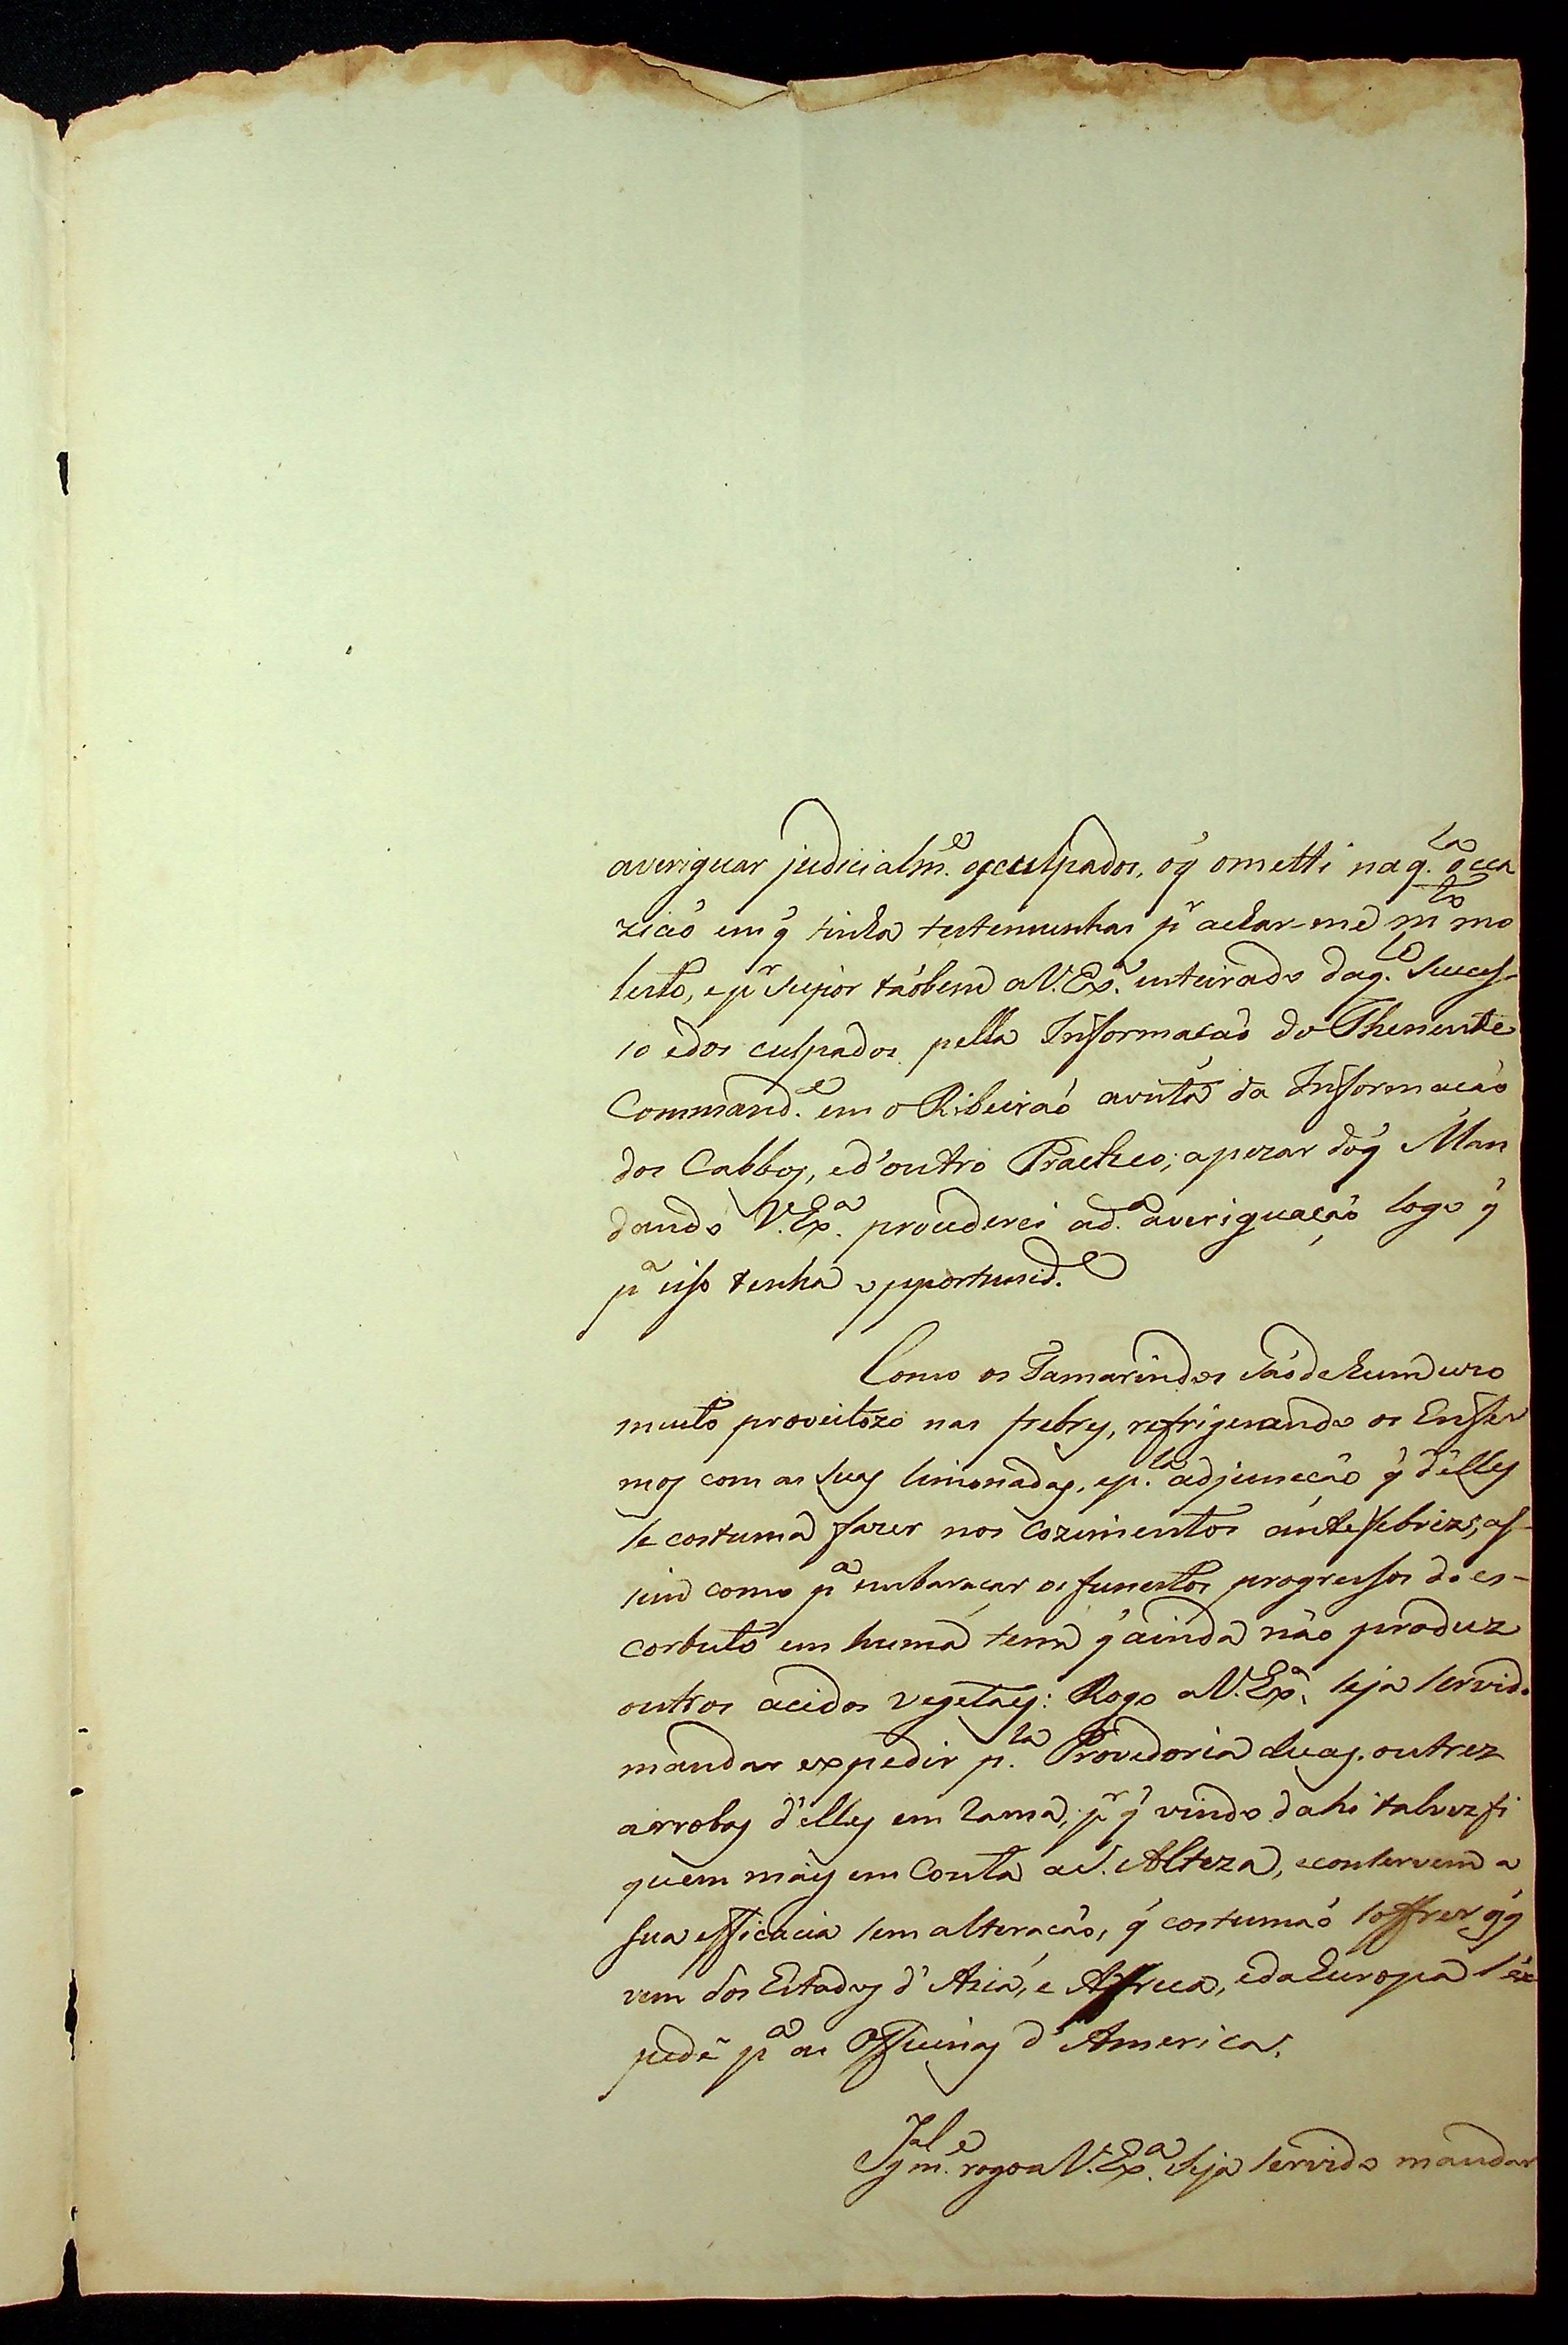 averiguar judicialm.e os culpados, o q̃ ometti naq.la occa
zicaõ em q̃ tinha testemunhas p.r achar-me m.to mo
lesto, e p.r supor taõbem a V. Ex.a inteirado daq.le suces-
so e dos culpados pella Informacaõ do Thenente
Command.e em o Ribeiraõ avista da Informacaõ
dos Cabbos, e d'outro Pracheo; apezar do q̃ Man
dando V. Ex.a procederei a d.a averiguação logo q̃
p.a isso tenha opportunid.e
Como os Tamarindos saõ de hum uzo
muito proveitozo nas frebres, refrigerando os Enfer
mos com as suas limonadas, e p.la adjuncçaõ q̃ d'elles
se costuma fazer nos Cozimentos ántefebrizes, as-
sim como p.a embaraçar os funestos progressos do es-
corbuto em huma terra q̃ ainda naõ produz
outros acidos vegetaes: Rogo a V. Ex.a seja servido
mandar expedir p.la Provedoria duas, outrez
arrobas d'elles em rama, p.r q̃ vindo dahi talvez fi
quem mais em Conta a S. Alteza, e conservem a
sua efficacia sem alteracaõ, q̃ costumaõ soffrer os q̃
vem dos Estados d'Azia, e Africa, e da Europa s'ex
pedẽ p.a as Officinas d'America.
Igualm.e rogo a V. Ex.a seja servido mandar